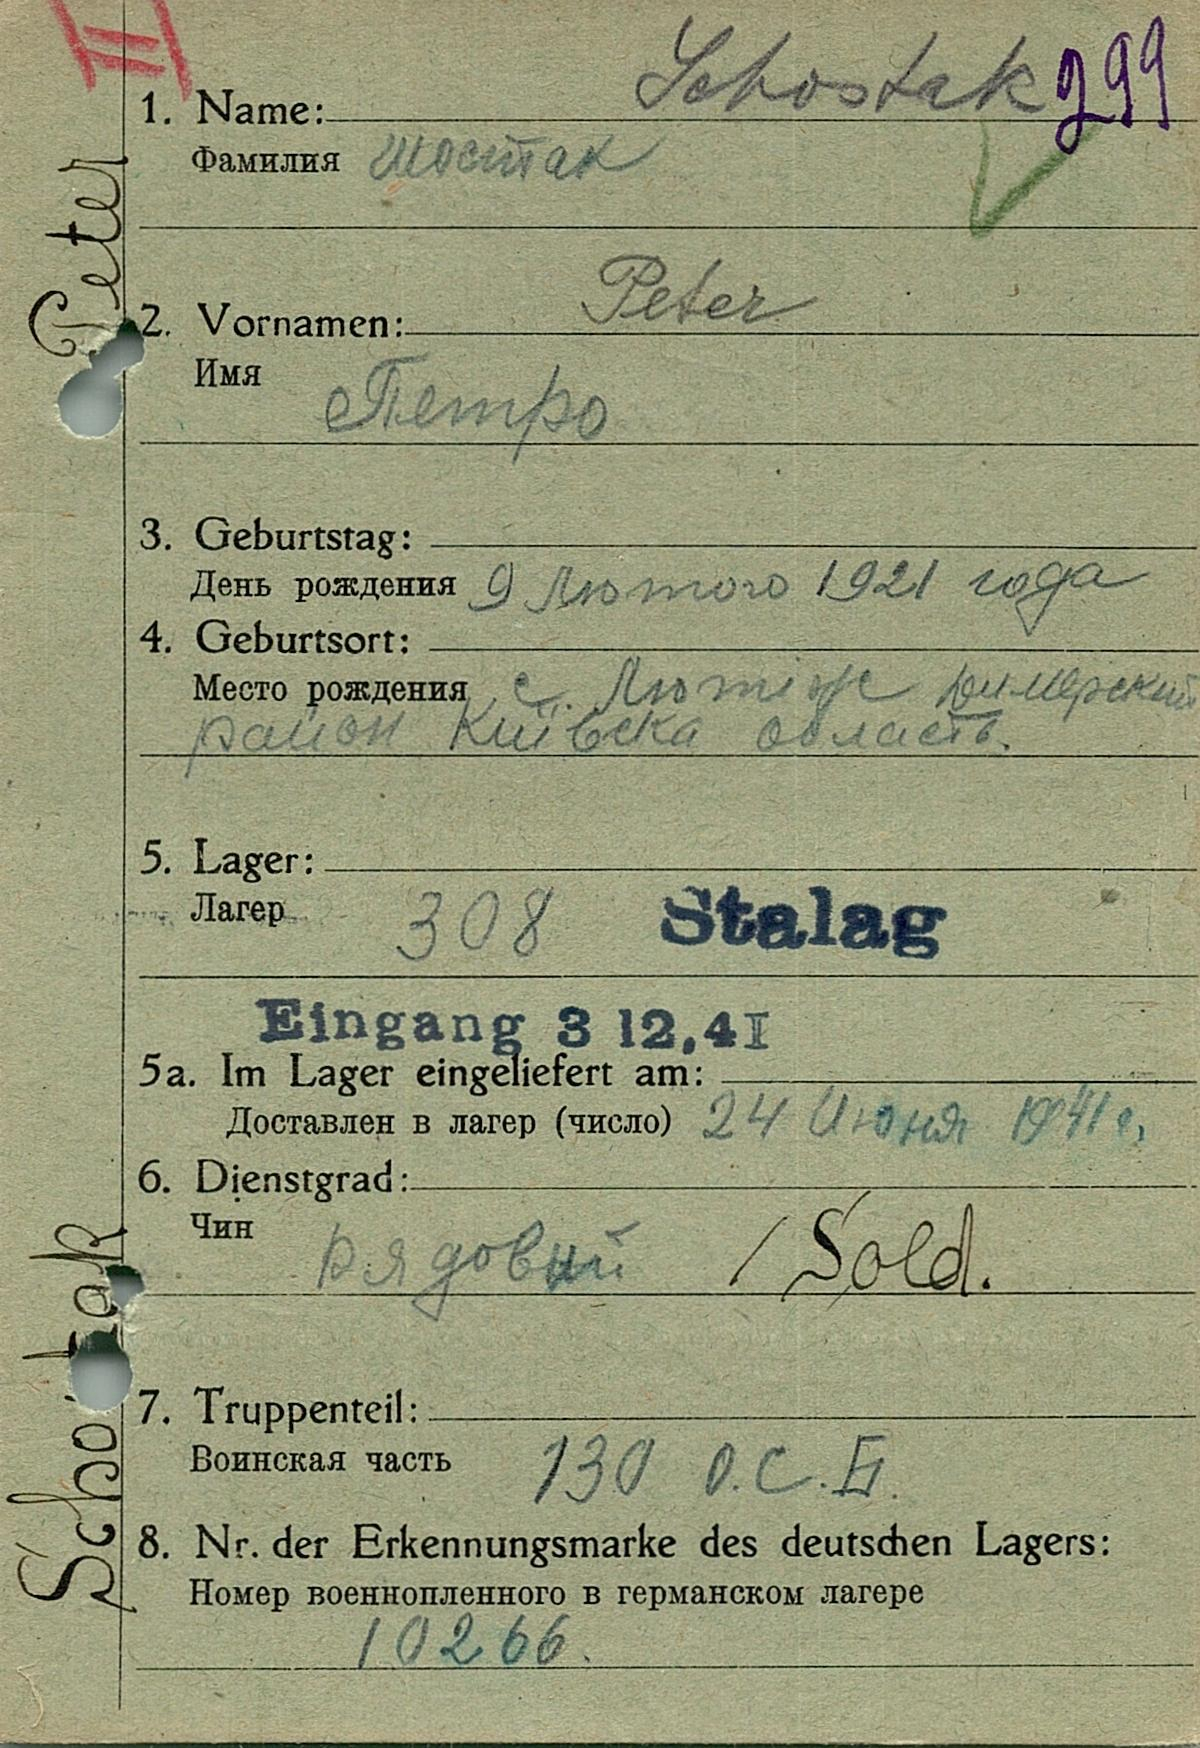 Schostak 299
1. Name:
Фамилия Шостак
Peter
Peter
2. Vornamen:
Имя Петро
3. Geburtstag:
День рождения 9 Лютого 1921 года
4. Geburtsort:
Место рождения с. Лютіж Димерский
район Київска область.
5. Lager:
Лагер 308 Stalag
Eingang 3 12.41
5a. Im Lager eingeliefert am:
Доставлен в лагер (число) 24 Июня 1941 г.
6. Dienstgrad:
Чин рядовий / Sold.
Schostak
7. Truppenteil:
Воинская часть 130 О.С.Б.
8. Nr. der Erkennungsmarke des deutschen Lagers:
Номер военнопленного в германском лагере
10266.